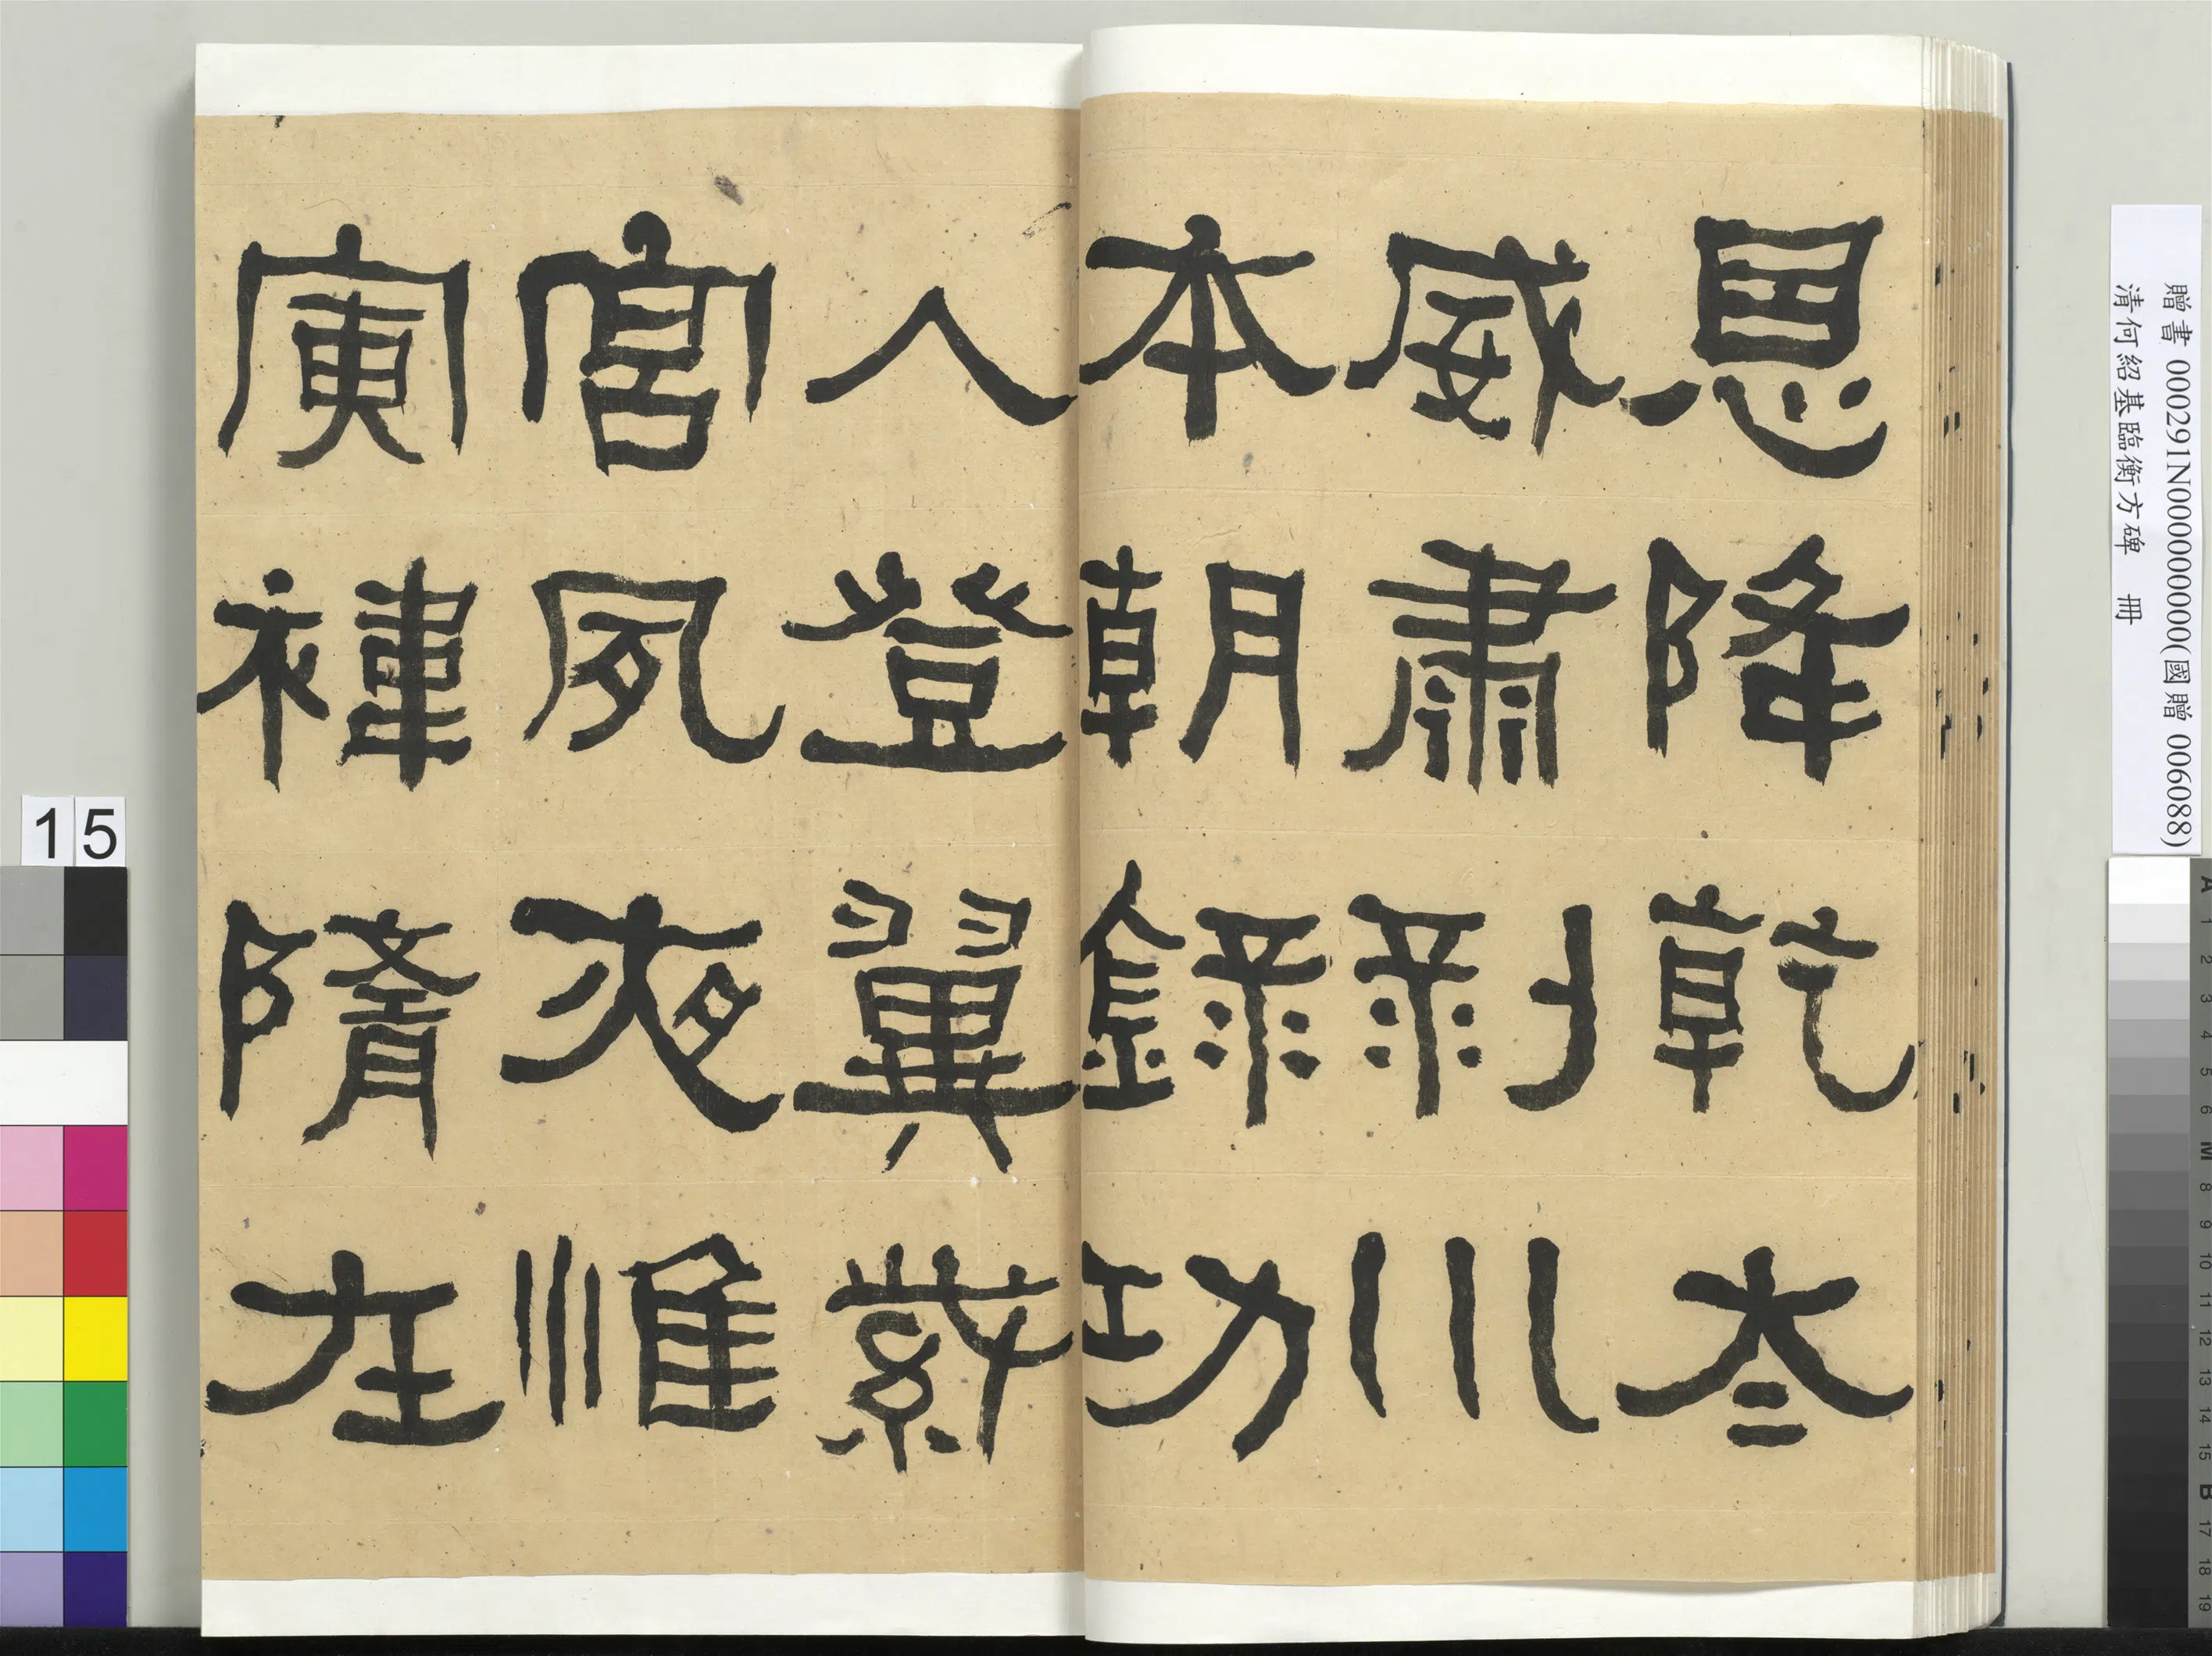 恩降乾夳
威肅剝川
本朝錄功
入登翼紫
宮夙夜惟
寅禕隋在
贈書 000291N000000000(國贈 006088)
清何紹基臨衡方碑 冊
15
A 1 2 3 4 5 6 M 8 9 10 11 12 13 14 15 B 17 18 19